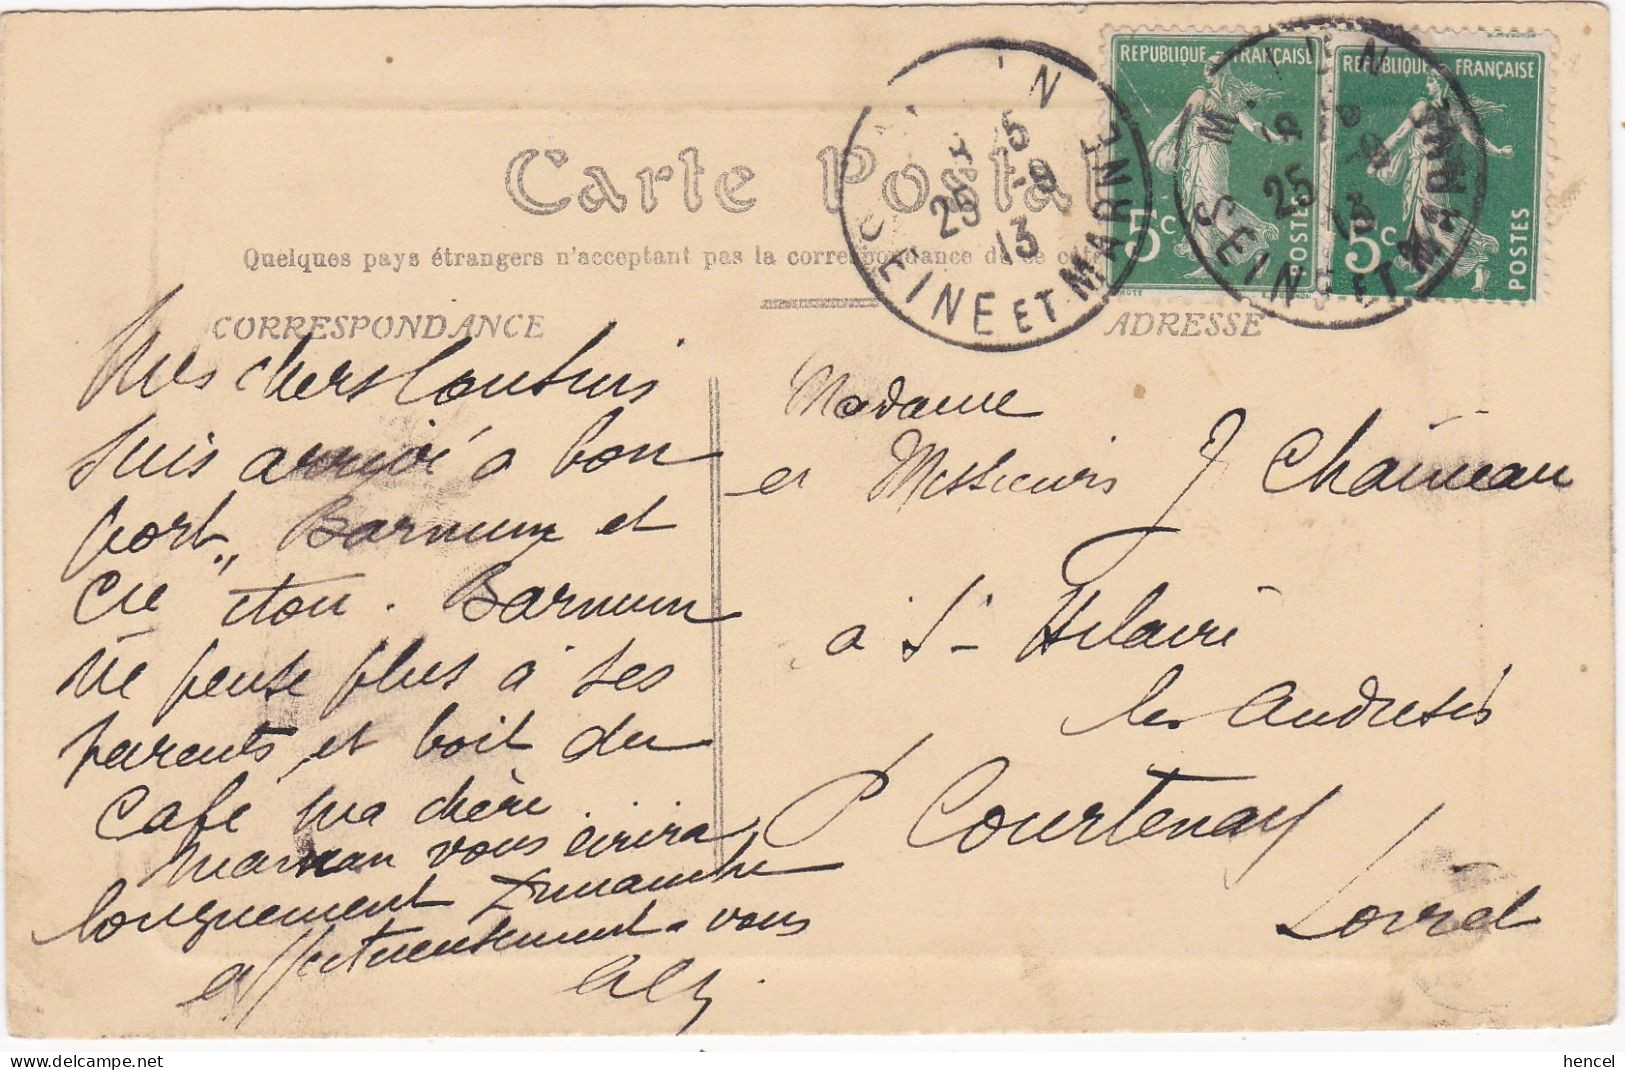 Carte Postale
Quelques pays étrangers n'acceptant pas la correspondance de ce côté
CORRESPONDANCE
ADRESSE
REPUBLIQUE FRANÇAISE
5c POSTES
REPUBLIQUE FRANÇAISE
5c POSTES
SEINE ET MARNE
25 -9 13
M UN
SEINE ET MARNE
25 13
Mes chers Cousins
suis arrivé à bon
port, Barnum et
Barnum
ne pense plus à ses
parents et boit du
café ma chère
maman vous écrira
longuement Dimanche
affectueusement à vous
Madame
et Messieurs J Chaineau
à St Hilaire
les Andrésis
P Courtenay
Loiret
hencel